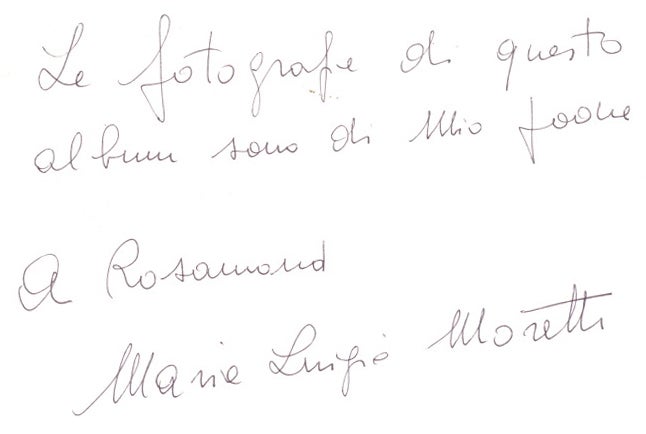 Le fotografie di questo
album sono di Mio padre
A Rosamond
Maria Luigia Moretti